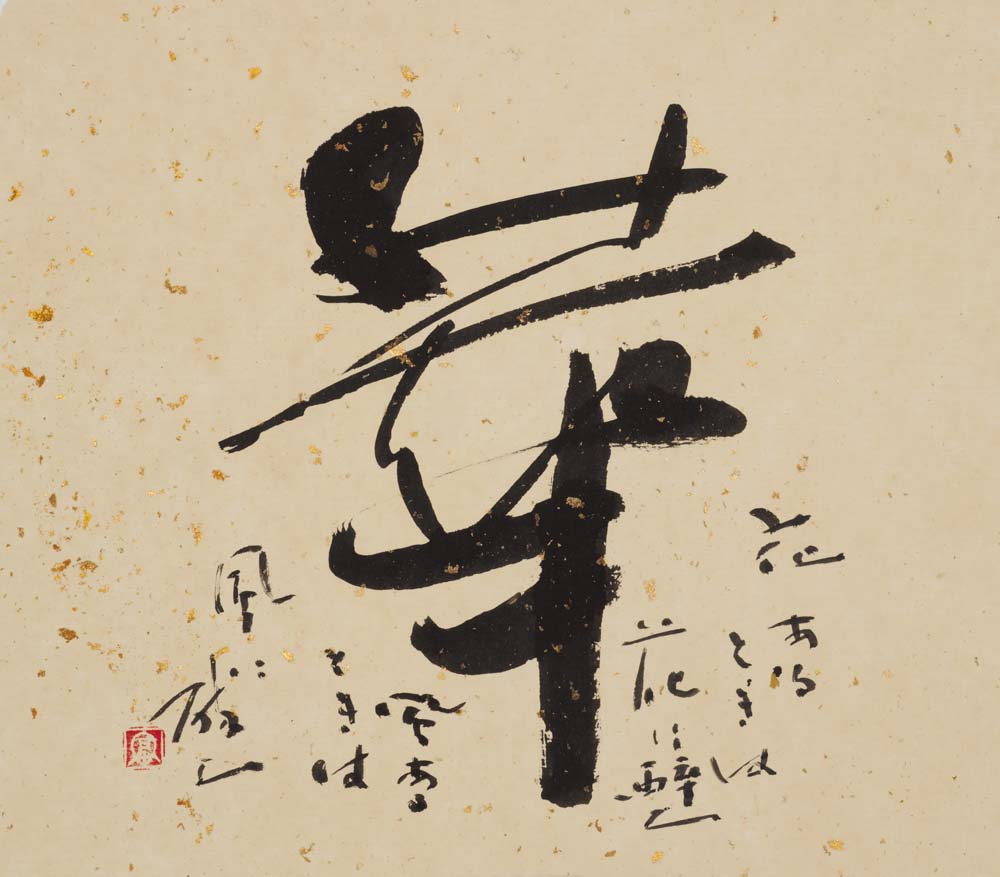 華
花ある
ときは
花に酔ひ
風ある
ときは
風に酔ひ